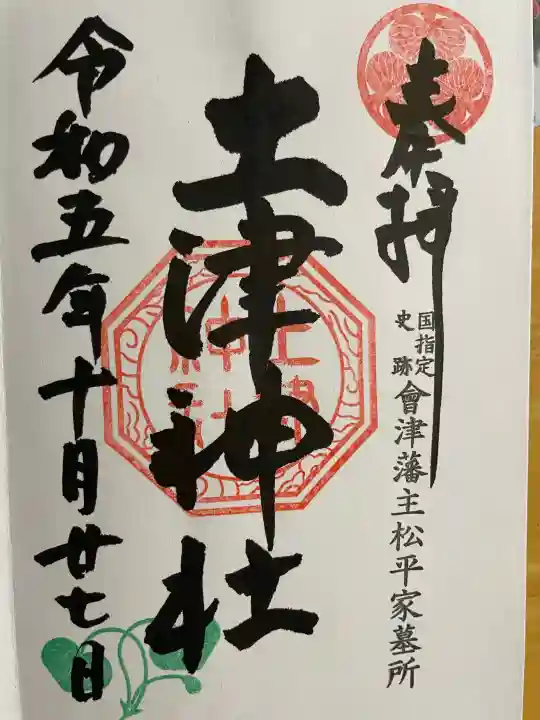 奉拝
国指定
史跡
會津藩主松平家墓所
土津神社
土津
神社
令和五年十月廿七日